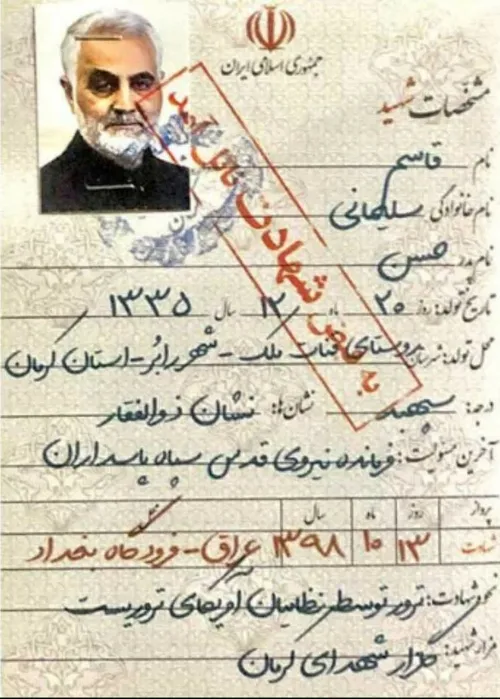 جمهوری اسلامی ایران
مشخصات شهید
نام قاسم
نام خانوادگی سلیمانی
نام پدر حسن
تاریخ تولد: روز ۲۰ ماه ۱۲ سال ۱۳۳۵
محل تولد: شهرستان روستای قنات ملک - شهر رابُر - استان کرمان
درجه: سپهبد نشان‌ها: نشان ذوالفقار
آخرین مسئولیت: فرمانده نیروی قدس سپاه پاسداران
پرواز روز ماه سال
شهادت ۱۳ ۱۰ ۱۳۹۸ عراق - فرودگاه بغداد
نحوه شهادت: ترور توسط نظامیان آمریکای تروریست
مزار شهید: گلزار شهدای کرمان
به فیض شهادت نائل آمد